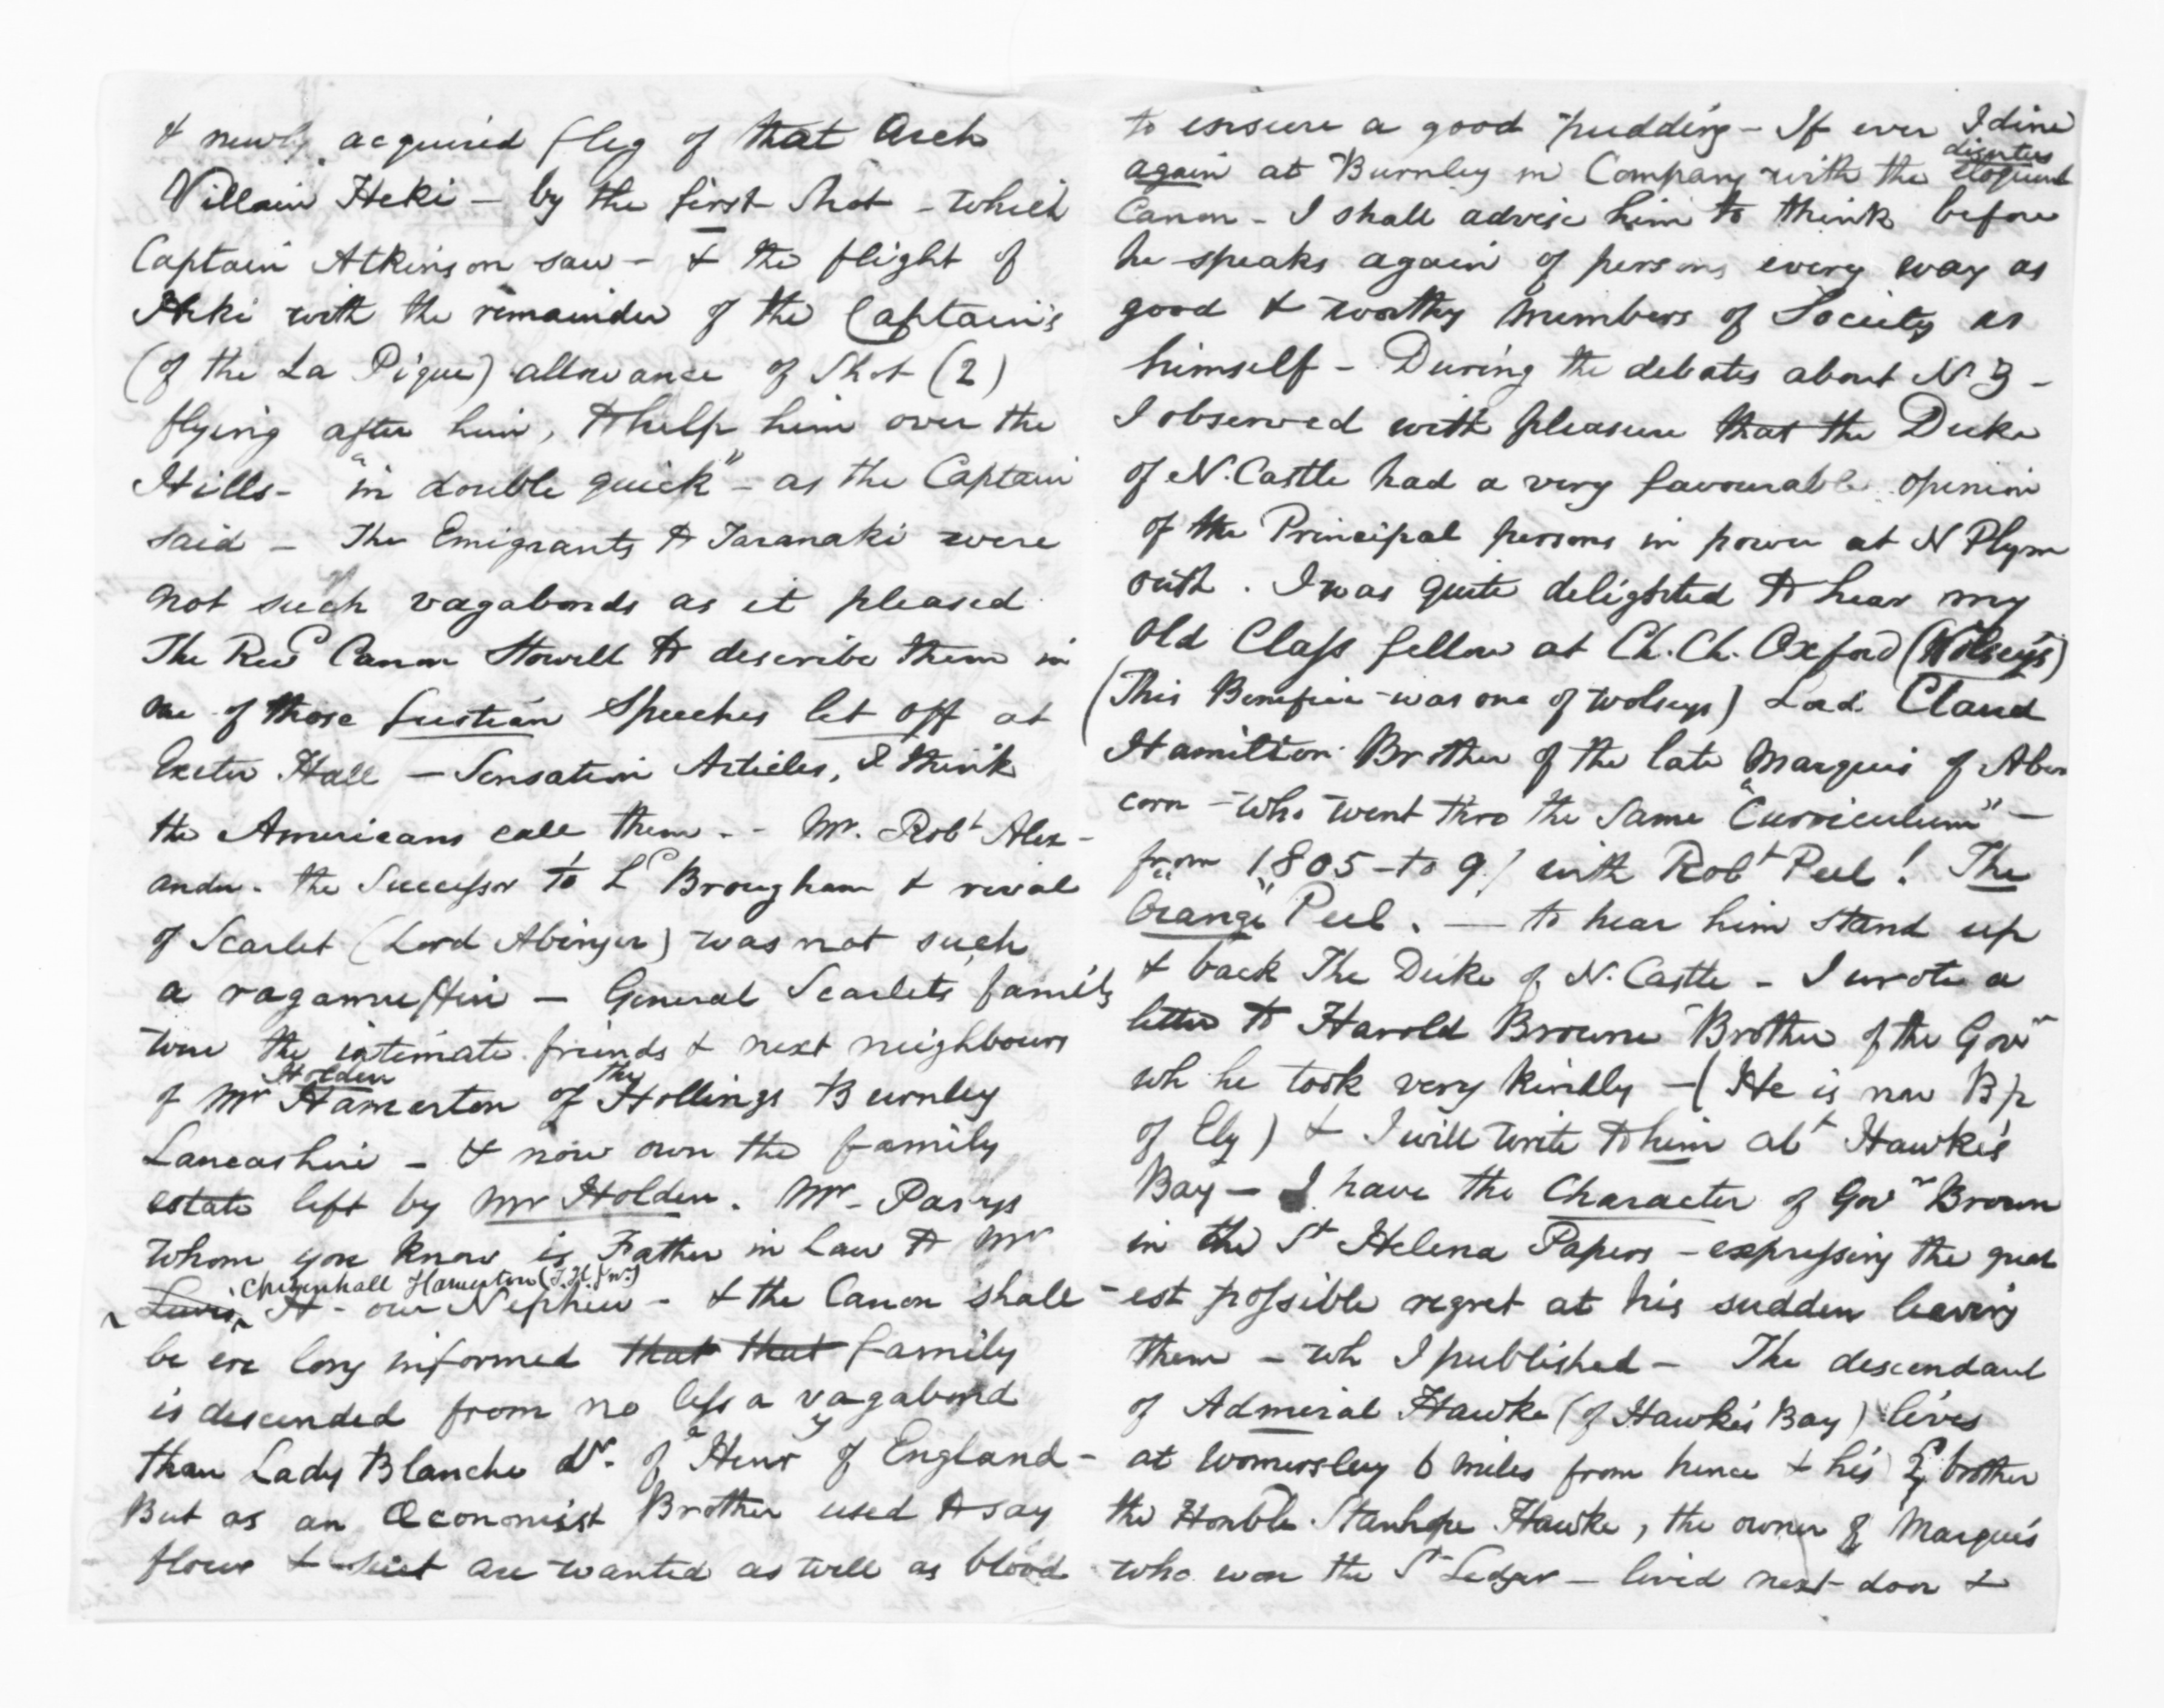 & newly acquired flag of that Arch
Villain Heki — by the first Shot — which
Captain Atkinson saw — & the flight of
Heki with the remainder of the Captain's
(of the La Pique) allowance of Shot (2)
flying after him, to help him over the
Hills — "in double quick" — as the Captain
said — The Emigrants to Taranaki were
not such vagabonds as it pleased
The Revd Canon Stowell to describe them in
one of those fustian Speeches let off at
Exeter Hall — Sensation Articles, I think
the Americans call them. - Mr. Robt Alex-
ander. the Successor to Ld Brougham & rival
of Scarlet (Lord Abinger) was not such
a ragamuffin — General Scarlets family
were the intimate friends & next neighbours
of Mr Holden Hamerton of the Hollings Burnley
Lancashire — & now own the family
estate left by Mr Holden. Mr Parrys
whom you know is Father in Law to Mr
Lewis Chippenhall Hamerton (J.H. Junr.) H - our Nephew — & the Canon shall
be ere long informed that that family
is descended from no less a vagabond
than Lady Blanche dr. of a Henry of England —
But as an Œconomist Brother used to say
flour & suet are wanted as well as blood
to ensure a good pudding — If ever I dine
again at Burnley in Company with the eloquent
Canon — I shall advise him to think before
he speaks again of persons every way as
good & worthy members of Society as
himself — During the debates about N Z —
I observed with pleasure that the Duke
of N. Castle had a very favourable opinion
of the Principal persons in power at N Plym
outh. I was quite delighted to hear my
old Class fellow at Ch. Ch. Oxford (Wolsey's)
(This Benefice was one of Wolseys) Lord Claud
Hamilton Brother of the late Marquis of Aber
corn — who went thro the same "Curriculum" —
from 1805 - to 9/ with Robt Peel! The
"Orange" Peel. — to hear him stand up
& back The Duke of N. Castle — I wrote a
letter to Harold Browne Brother of the Govr
wh he took very kindly — (He is now Bp
of Ely) & I will write to him abt Hawke's
Bay — I have the Character of Govr Brown
in the St Helena Papers — expressing the great
-est possible regret at his sudden leaving
them — wh I published — The descendant
of Admiral Hawke (of Hawke's Bay) lives
at Womersley 6 miles from hence & his brother
the Honble Stanhope Hawke, the owner of Marquis
who won the St Ledger — lived next door &